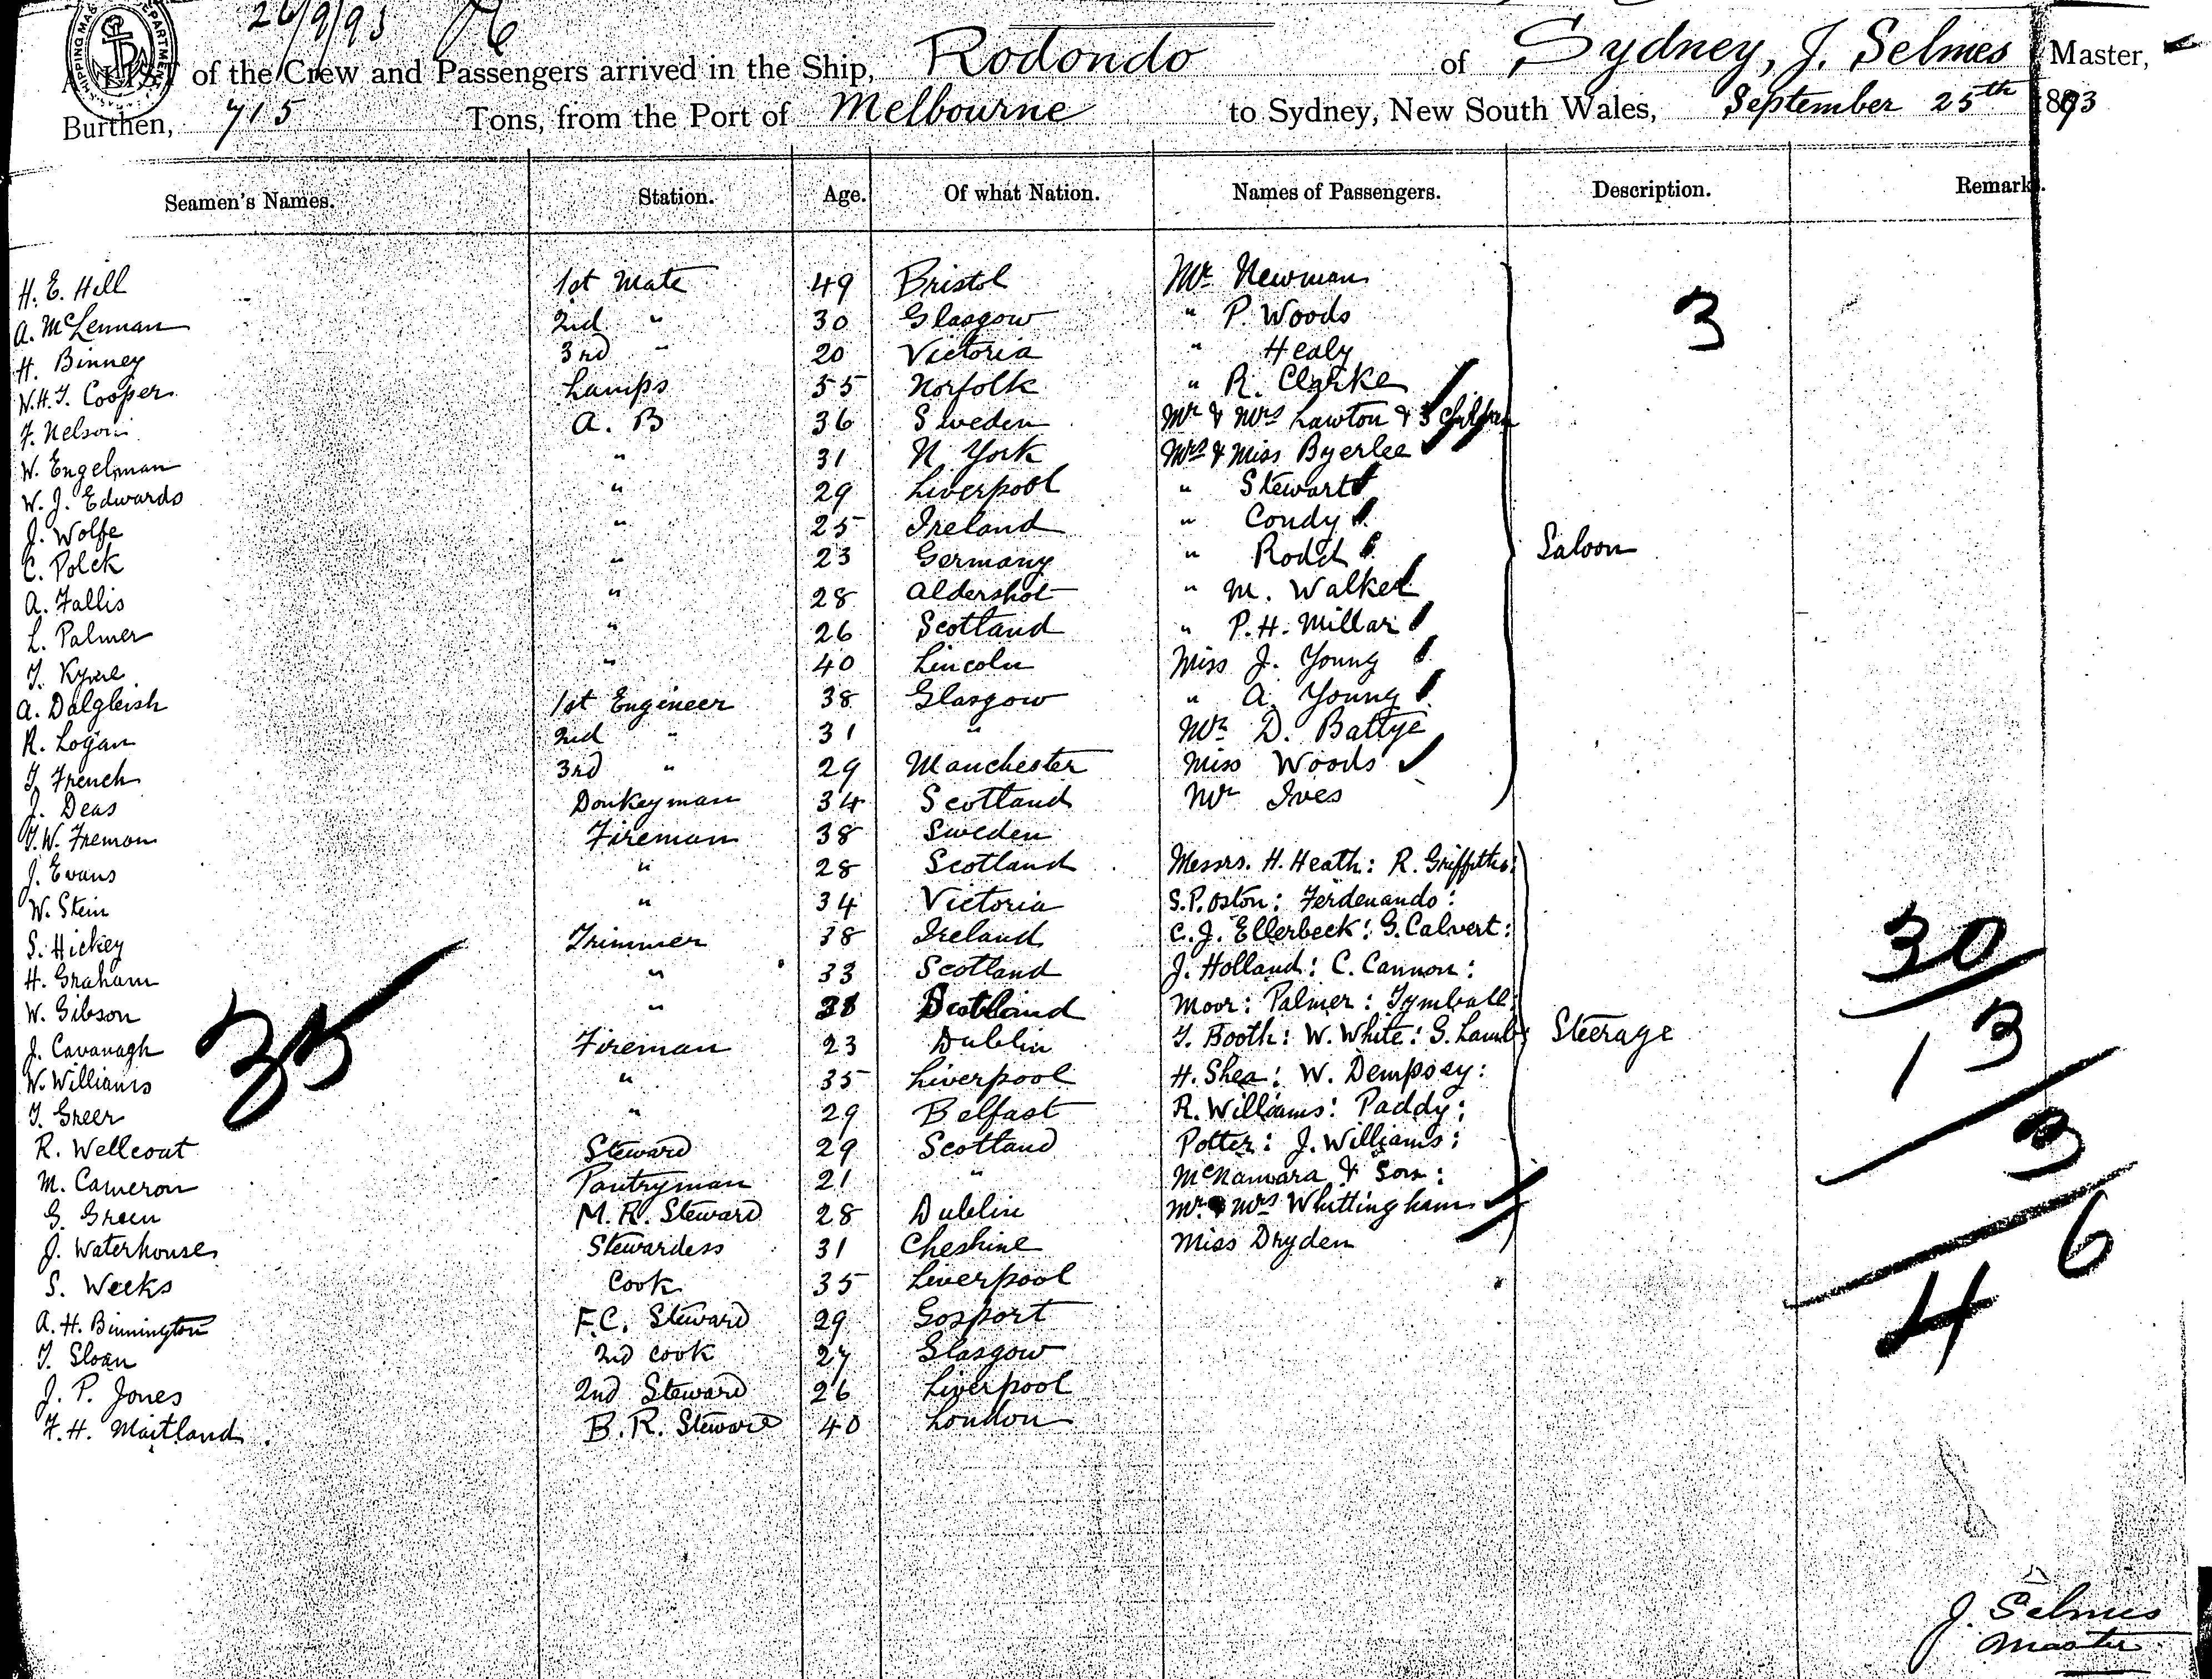 26/9/93
A LIST of the Crew and Passengers arrived in the Ship, Rodondo of Sydney, J. Selmes Master,
Burthen, 715 Tons, from the Port of Melbourne to Sydney, New South Wales, September 25th 1893
Seamen's Names. Station. Age. Of what Nation. Names of Passengers. Description. Remarks.
H. E. Hill 1st Mate 49 Bristol Mr Newman 3
A. McLennan 2nd " 30 Glasgow " P. Woods
H. Binney 3rd " 20 Victoria " Healy
W.H.T. Cooper Lamps 55 Norfolk " R. Clarke
F. Nelson A. B 36 Sweden Mr & Mrs Lawton & 3 Children
W. Engelman " 31 N. York Mrs & Miss Byerlee
W. J. Edwards " 29 Liverpool " Stewart
J. Wolfe " 25 Ireland " Condy
C. Polck " 23 Germany " Rodd Saloon
A. Fallis " 28 Aldershot " M. Walker
L. Palmer " 26 Scotland " P. H. Millar
T. " 40 Lincoln Miss J. Young
A. Dalgleish 1st Engineer 38 Glasgow " A. Young
R. Logan 2nd " 31 " Mr D. Battye
T. French 3rd " 29 Manchester Miss Woods
J. Deas Donkeyman 34 Scotland Mr Ives
T.W. Fremon Fireman 38 Sweden
J. Evans " 28 Scotland Messrs. H. Heath: R. Griffiths:
W. Stein " 34 Victoria S.P. Oston: Ferdenando:
S. Hickey Trimmer 38 Ireland C. J. Ellerbeck: G. Calvert: 30
H. Graham " 33 Scotland J. Holland: C. Cannon:
W. Gibson " Scotland Moor: Palmer: Tymball: 13
35
J. Cavanagh Fireman 23 Dublin T. Booth: W. White: G. Lamb: Steerage
W. Williams " 35 Liverpool H. Shea: W. Dempsey:
T. Greer " 29 Belfast R. Williams: Paddy:
R. Wellcout Steward 29 Scotland Potter: J. Williams: 3
M. Cameron Pantryman 21 " McNamara & Son:
G. Green M. R. Steward 28 Dublin Mr & Mrs Whittingham
J. Waterhouse Stewardess 31 Cheshire Miss Dryden 6
S. Weeks Cook 35 Liverpool
A. H. Binnington F.C. Steward 29 Gosport 4
T. Sloan 2nd Cook 27 Glasgow
J. P. Jones 2nd Steward 26 Liverpool
F. H. Maitland B. R. Steward 40 London
J. Selmes
Master